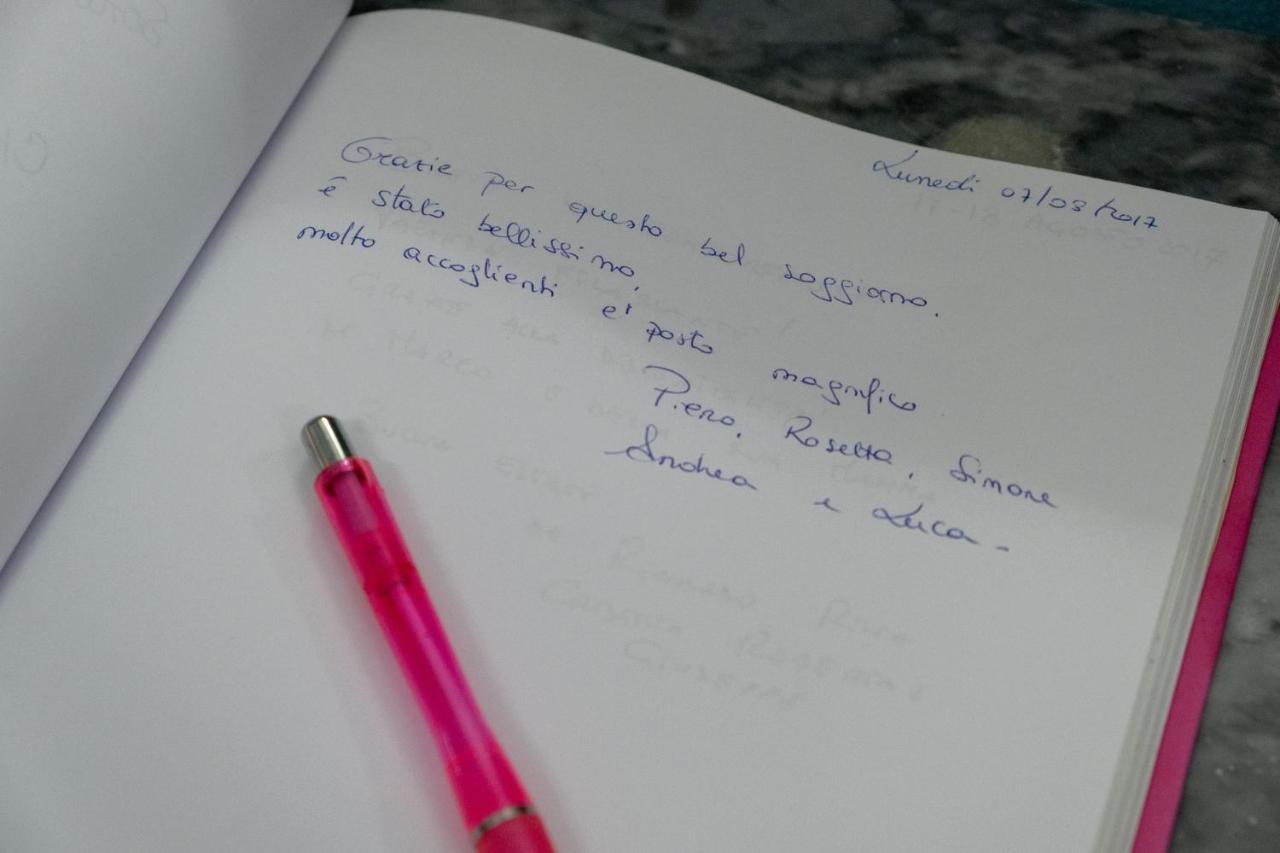 Lunedì 07/08/2017
Grazie per questo bel soggiorno.
é stato bellissimo,
molto accoglienti e' posto magnifico
Piero, Rosetta, Simone
Andrea e Luca -